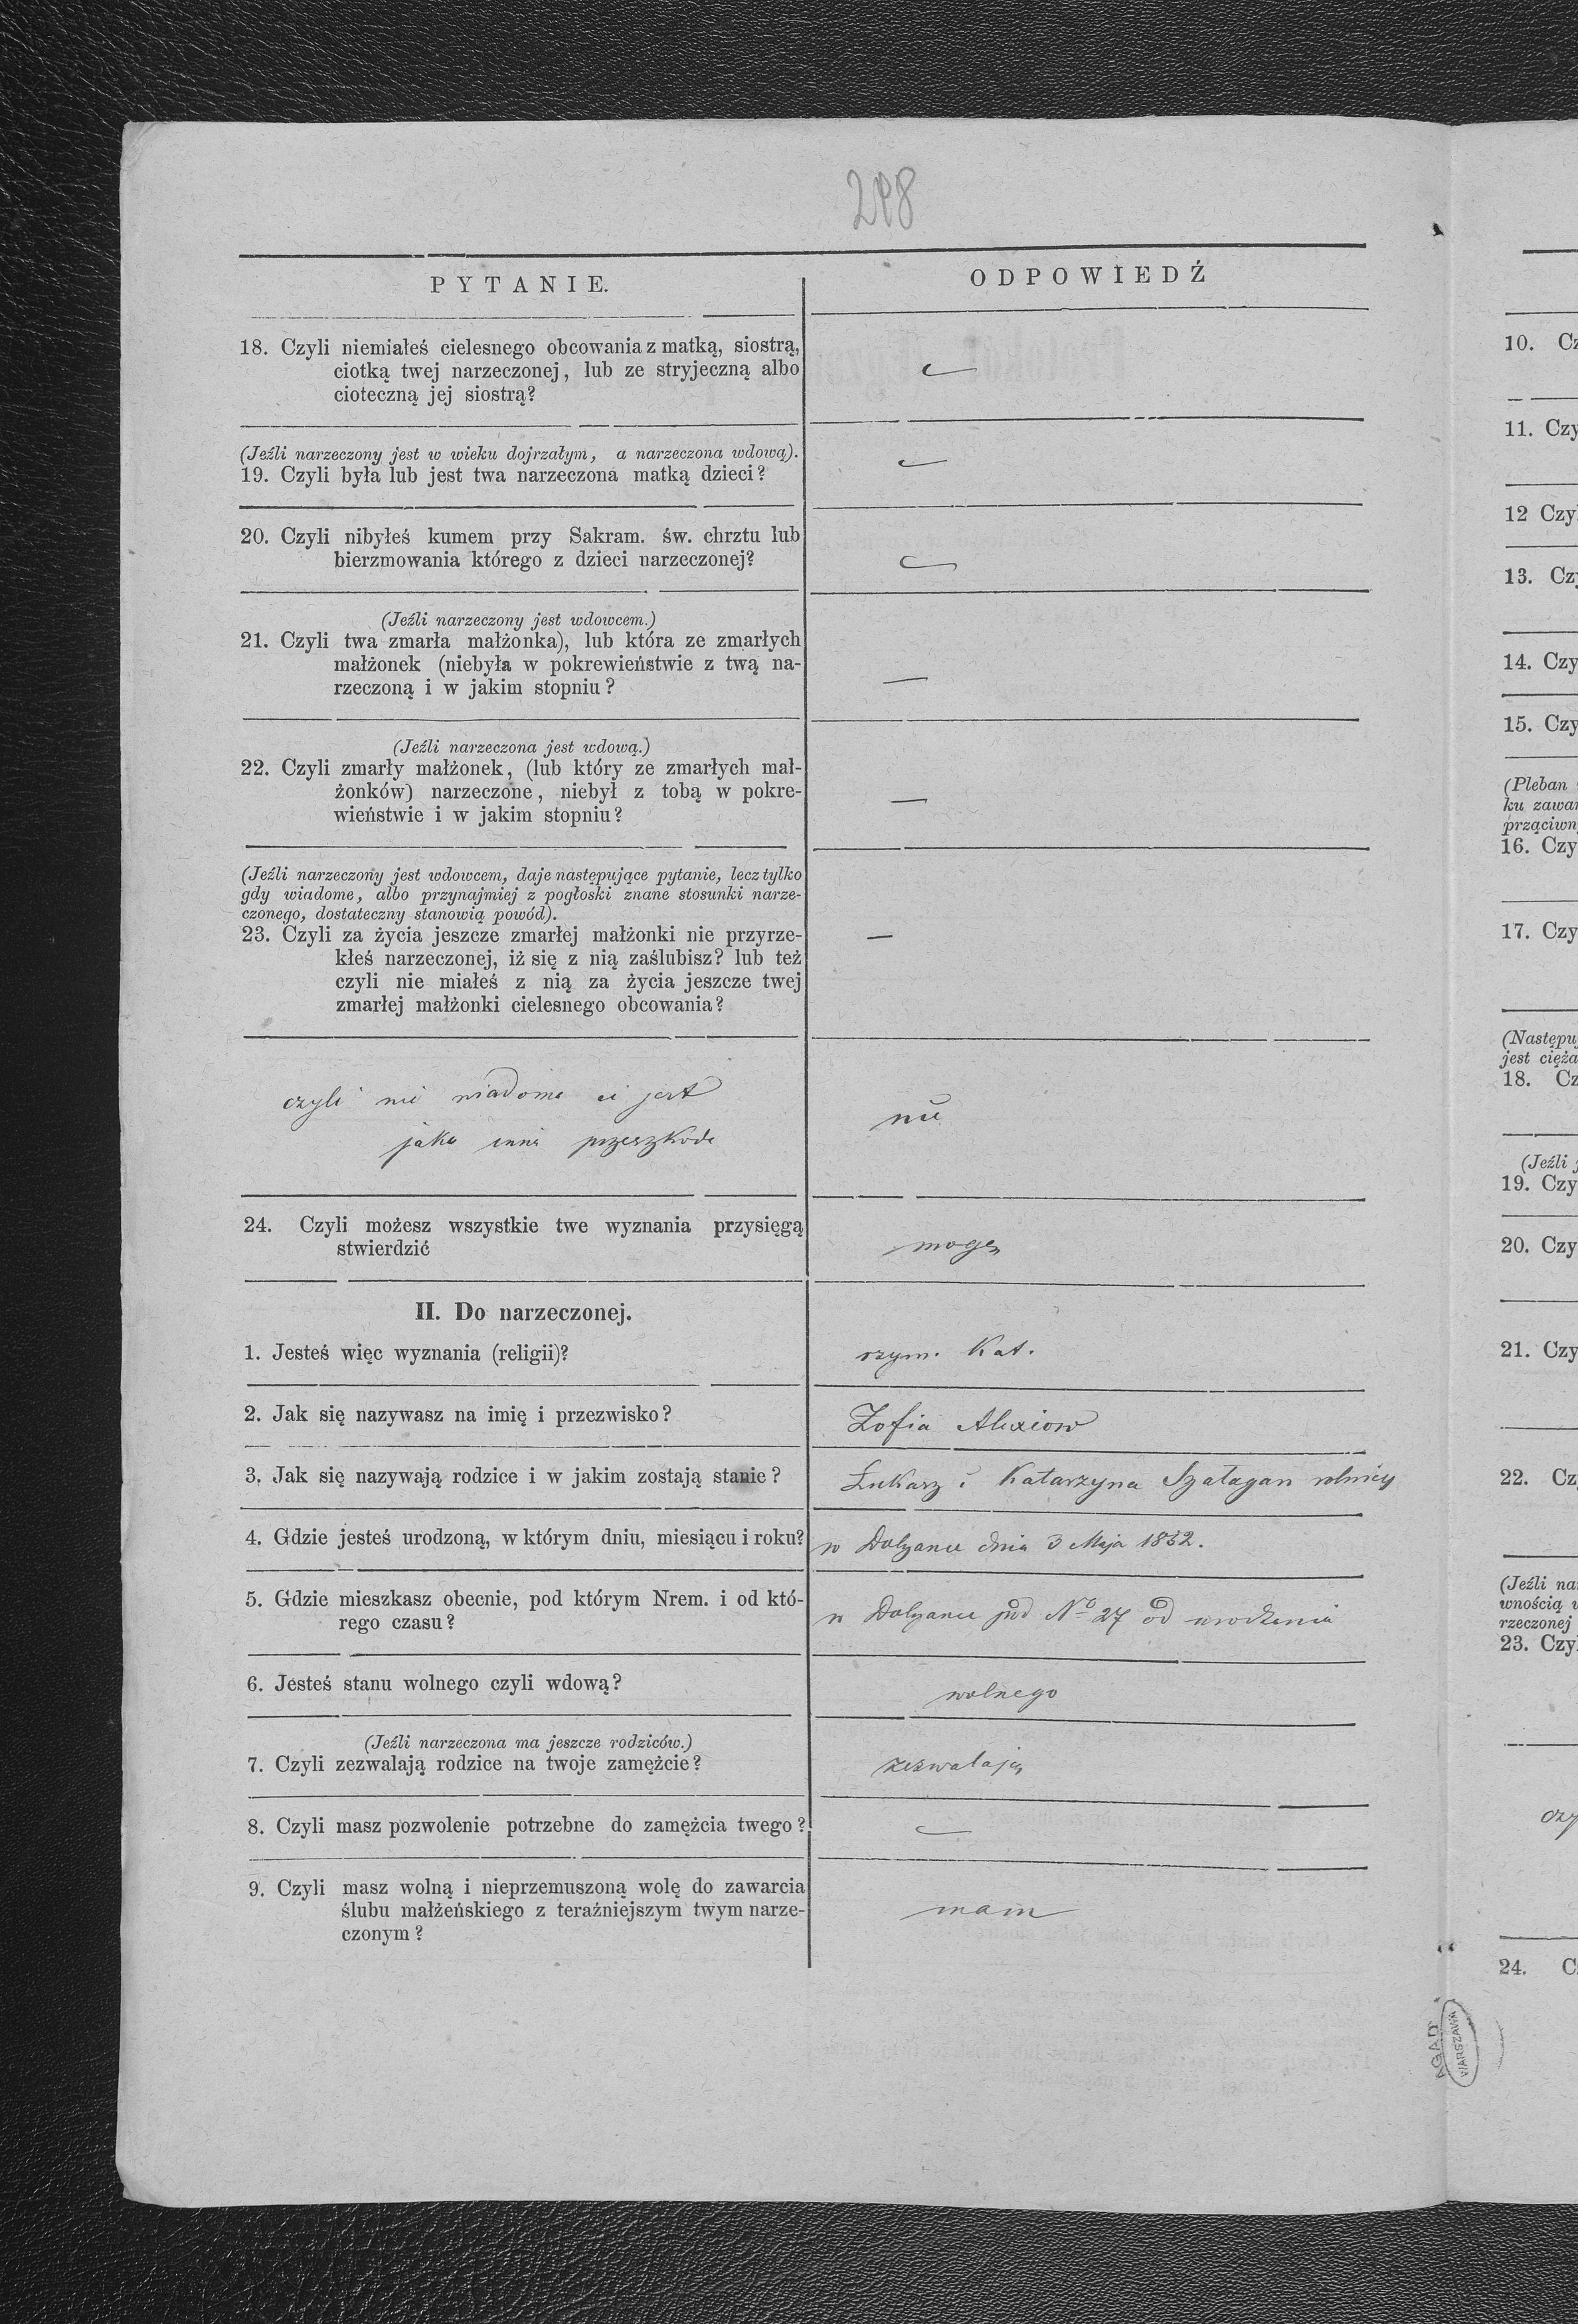 298
PYTANIE.
ODPOWIEDŹ
18. Czyli niemiałeś cielesnego obcowania z matką, siostrą,
ciotką twej narzeczonej, lub ze stryjeczną albo
cioteczną jej siostrą?
(Jeźli narzeczony jest w wieku dojrzałym, a narzeczona wdową).
19. Czyli była lub jest twa narzeczona matką dzieci?
20. Czyli nibyłeś kumem przy Sakram. św. chrztu lub
bierzmowania którego z dzieci narzeczonej?
(Jeźli narzeczony jest wdowcem.)
21. Czyli twa zmarła małżonka), lub która ze zmarłych
małżonek (niebyła w pokrewieństwie z twą na-
rzeczoną i w jakim stopniu?
—
(Jeźli narzeczona jest wdową.)
22. Czyli zmarły małżonek, (lub który ze zmarłych mał-
żonków) narzeczone, niebył z tobą w pokre-
wieństwie i w jakim stopniu?
—
(Jeźli narzeczony jest wdowcem, daje następujące pytanie, lecz tylko
gdy wiadome, albo przynajmiej z pogłoski znane stosunki narze-
czonego, dostateczny stanowią powód).
23. Czyli za życia jeszcze zmarłej małżonki nie przyrze-
kłeś narzeczonej, iż się z nią zaślubisz? lub też
czyli nie miałeś z nią za życia jeszcze twej
zmarłej małżonki cielesnego obcowania?
—
czyli nie wiadoma ci jest
jaka inna przeszkoda
nie
24. Czyli możesz wszystkie twe wyznania przysięgą
stwierdzić
mogę
II. Do narzeczonej.
1. Jesteś więc wyznania (religii)?
rzym. Kat.
2. Jak się nazywasz na imię i przezwisko?
Zofia Alexiow
3. Jak się nazywają rodzice i w jakim zostają stanie?
Łukasz i Katarzyna Szałagan rolnicy
4. Gdzie jesteś urodzoną, w którym dniu, miesiącu i roku?
w dnia 3 Maja
5. Gdzie mieszkasz obecnie, pod którym Nrem. i od któ-
rego czasu?
w pod No 27 od urodzenia
6. Jesteś stanu wolnego czyli wdową?
wolnego
(Jeźli narzeczona ma jeszcze rodziców.)
7. Czyli zezwalają rodzice na twoje zamężcie?
zezwalają
8. Czyli masz pozwolenie potrzebne do zamężcia twego?
9. Czyli masz wolną i nieprzemuszoną wolę do zawarcia
ślubu małżeńskiego z teraźniejszym twym narze-
czonym?
mam
10. Cz
11. Czy
12 Czy
13. Czy
14. Czy
15. Czy
(Pleban
ku zawar
prząciwn
16. Czy
17. Czy
(Następu
jest cięża
18. Cz
(Jeźli
19. Czy
20. Czy
21. Czy
22. Cz
(Jeźli na
wnością
rzeczonej
23. Czy
czy
24. C
AGAD
WARSZAWA